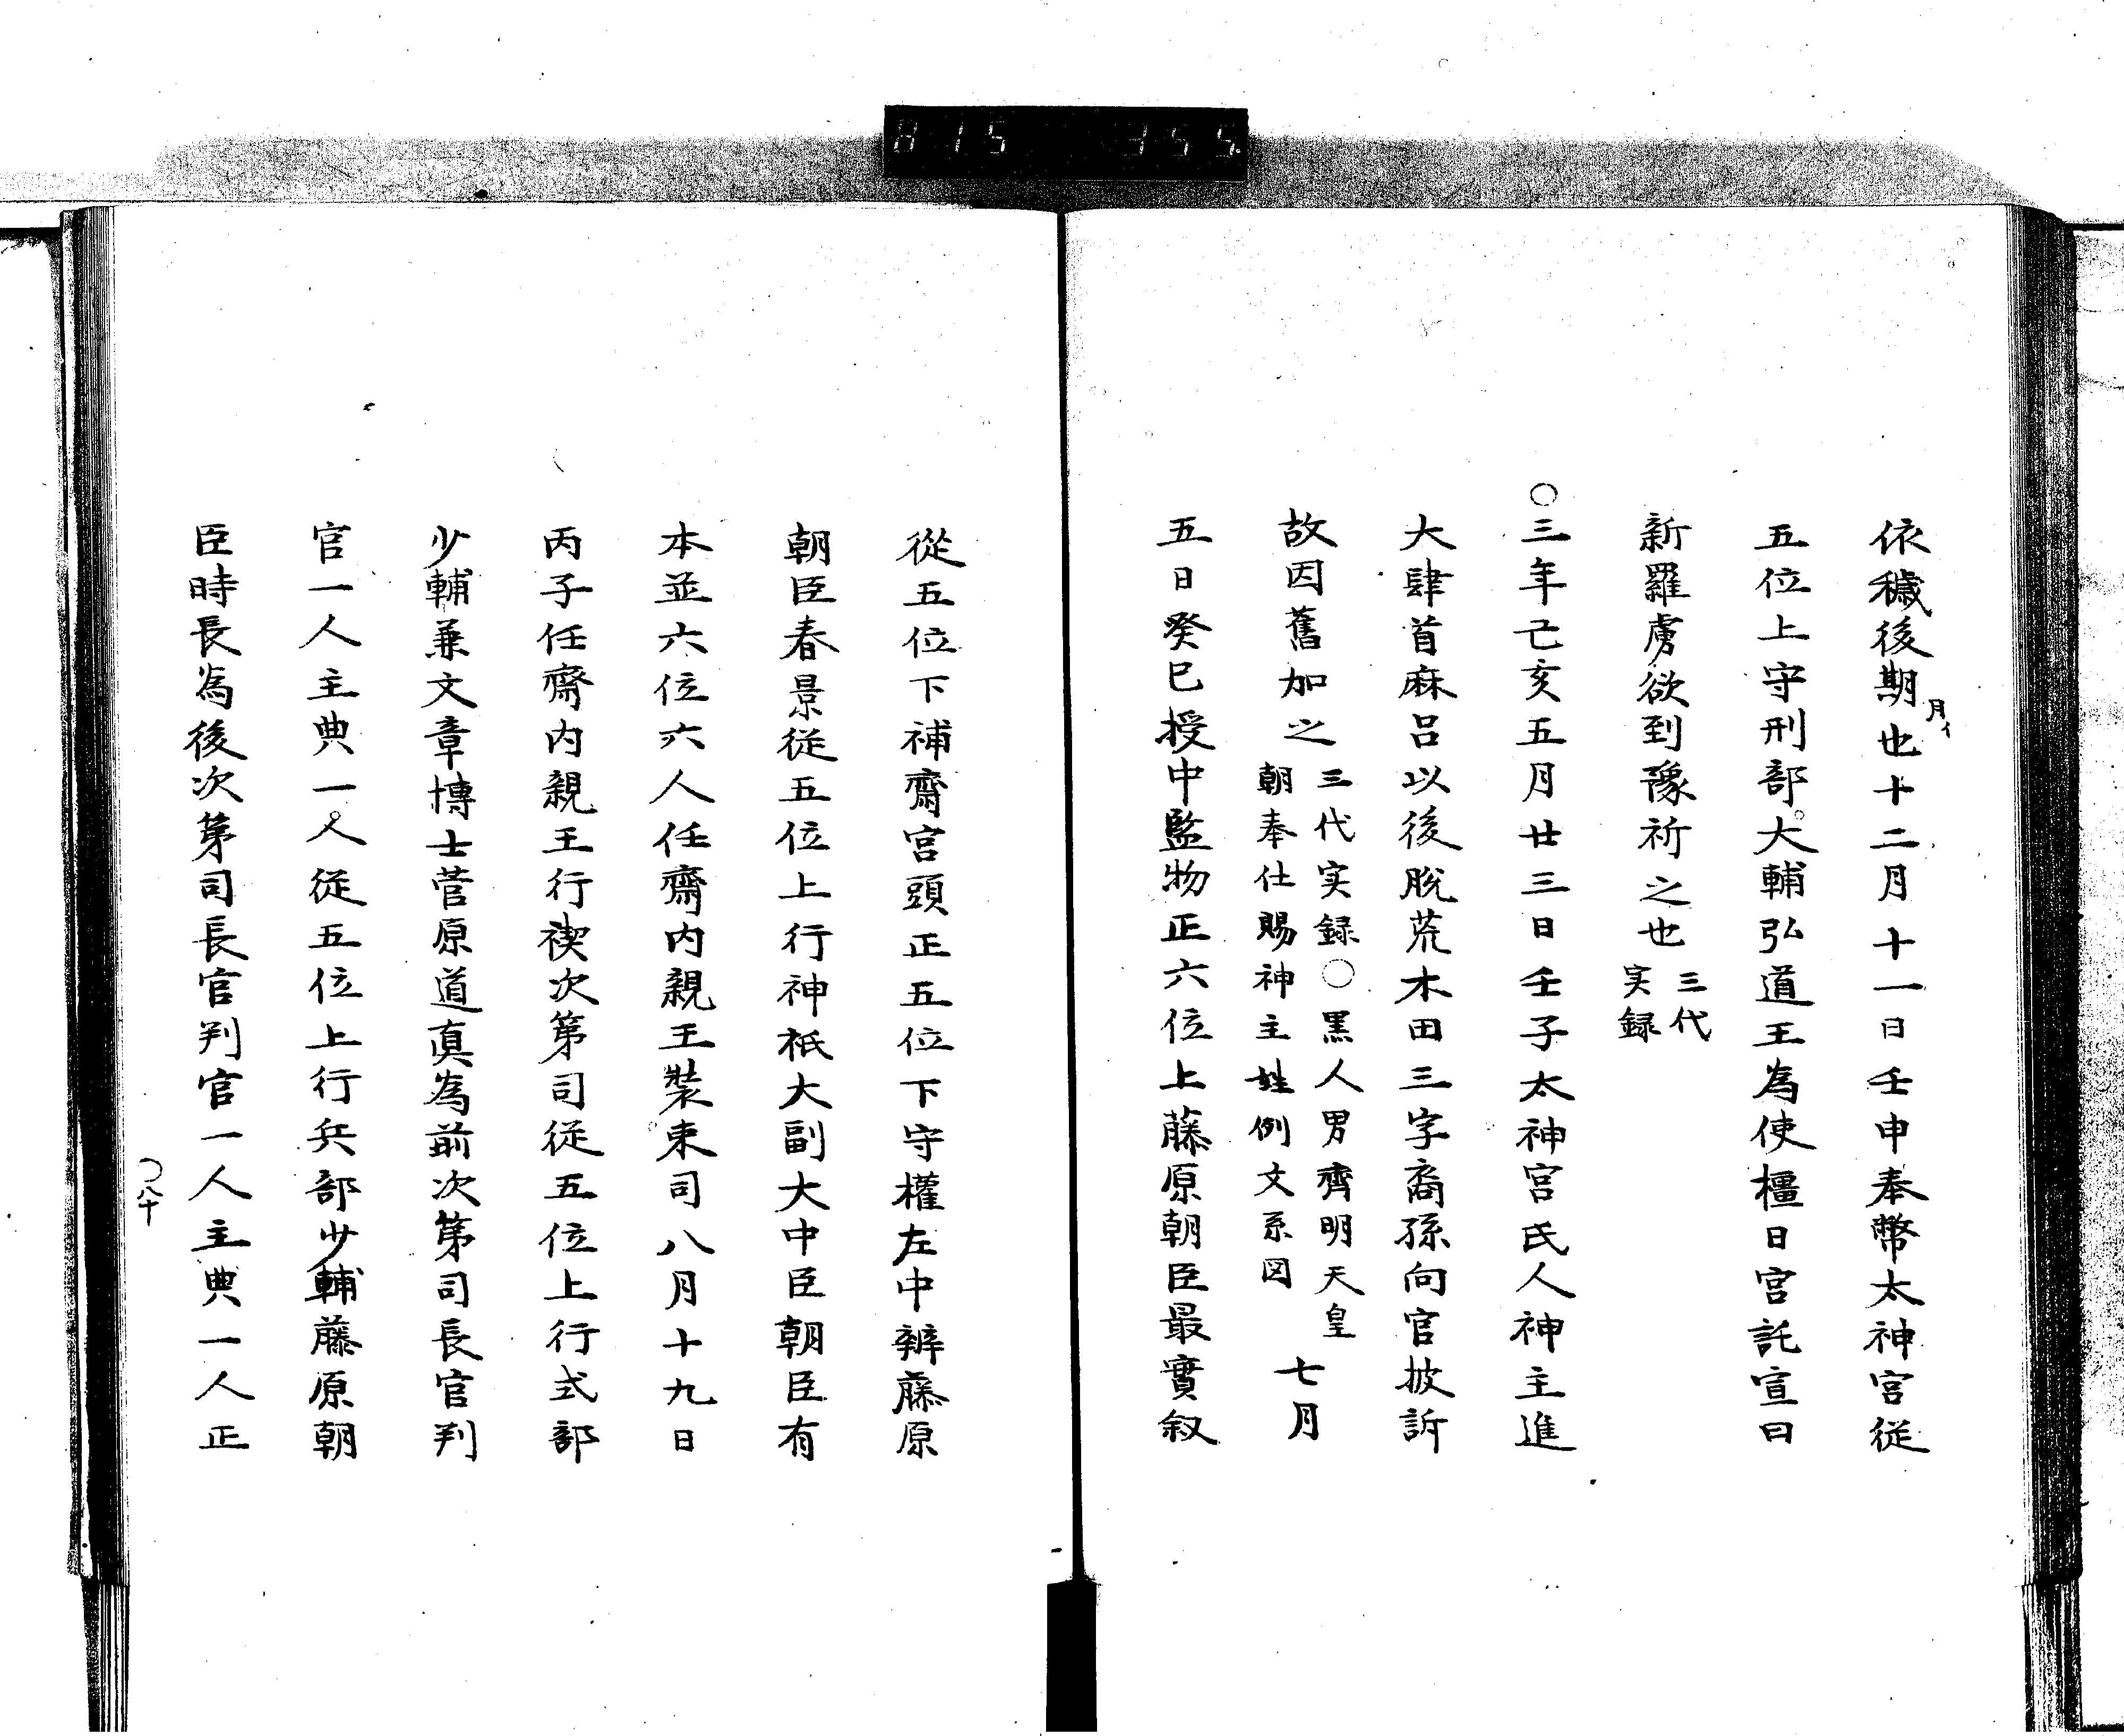 815 355
依穢後期也十二月十一日壬申奉幣太神宮従
月イ
五位上守刑部大輔弘道王為使橿日宮託宣曰
新羅虜欲到豫祈之也三代
実録
○三年己亥五月廿三日壬子太神宮氏人神主進
大肆首麻呂以後脱荒木田三字裔孫向官披訴
故因舊加之三代実録○黒人男齊明天皇
朝奉仕賜神主姓例文系図
七月
五日癸巳授中監物正六位上藤原朝臣最實叙
從五位下補齋宮頭正五位下守權左中辨藤原
朝臣春景従五位上行神祇大副大中臣朝臣有
本並六位六人任齋内親王裝束司八月十九日
丙子任齋内親王行禊次第司従五位上行式部
少輔兼文章博士菅原道眞為前次第司長官判
官一人主典一人従五位上行兵部少輔藤原朝
臣時長為後次第司長官判官一人主典一人正